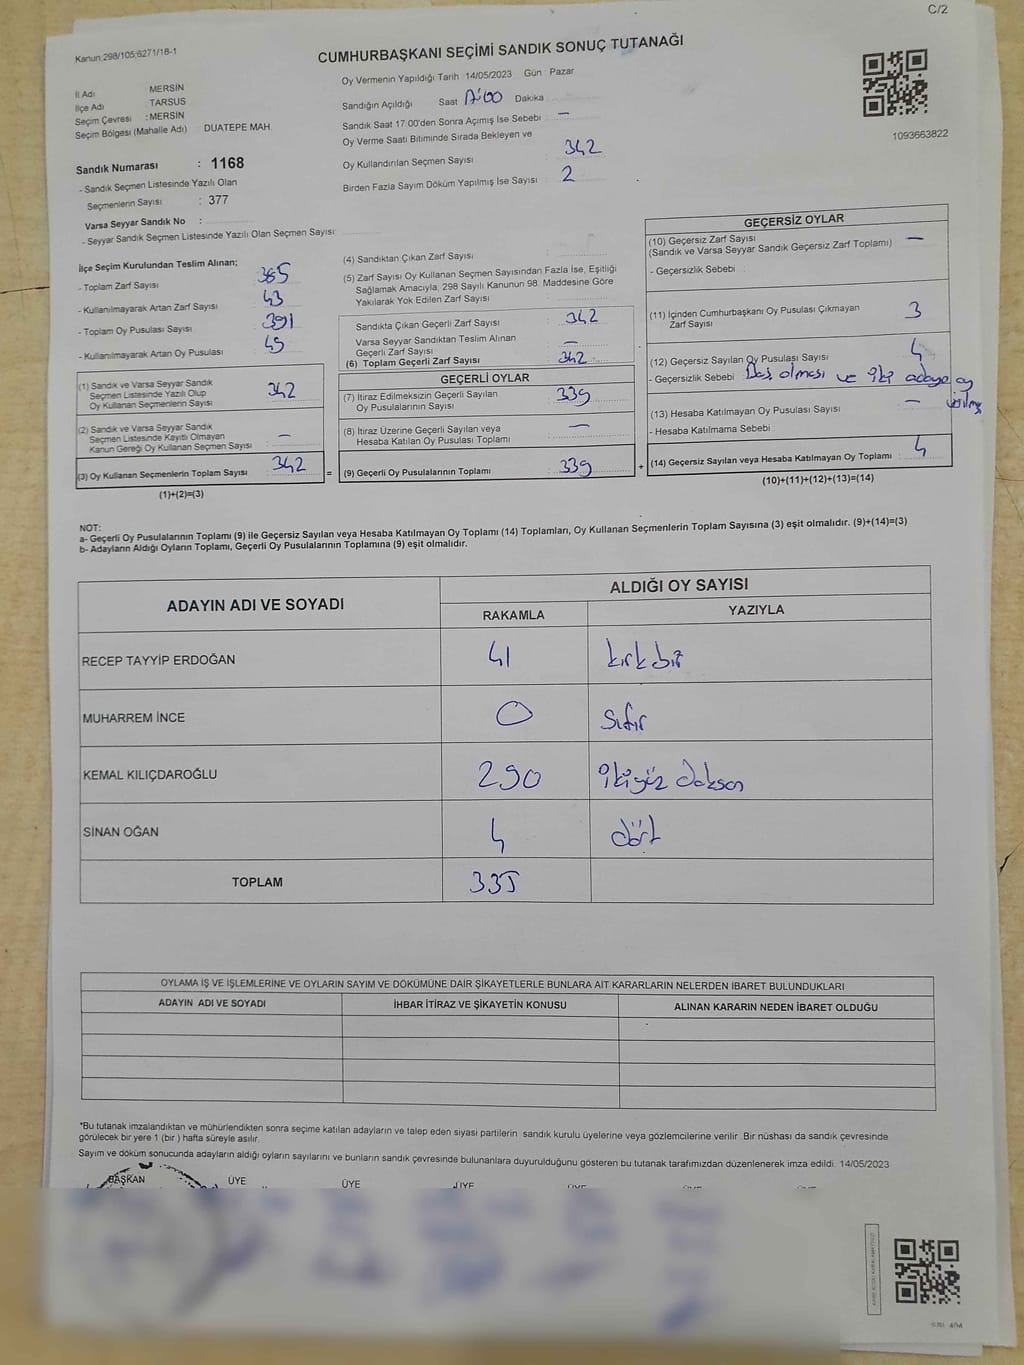 C/2
Kanun:298/105;6271/18-1
CUMHURBAŞKANI SEÇİMİ SANDIK SONUÇ TUTANAĞI
Oy Vermenin Yapıldığı Tarih 14/05/2023 Gün Pazar
İl Adı MERSİN
İlçe Adı : TARSUS
Seçim Çevresi : MERSİN
Seçim Bölgesi (Mahalle Adı) DUATEPE MAH.
Sandığın Açıldığı Saat 17:00 Dakika
Sandık Saat 17:00'den Sonra Açımış İse Sebebi : —
Oy Verme Saati Bitiminde Sırada Bekleyen ve
Oy Kullandırılan Seçmen Sayısı : 342
Birden Fazla Sayım Döküm Yapılmış İse Sayısı : 2
1093663822
Sandık Numarası : 1168
- Sandık Seçmen Listesinde Yazılı Olan
Seçmenlerin Sayısı : 377
Varsa Seyyar Sandık No :
- Seyyar Sandık Seçmen Listesinde Yazılı Olan Seçmen Sayısı:
İlçe Seçim Kurulundan Teslim Alınan;
- Toplam Zarf Sayısı : 385
- Kullanılmayarak Artan Zarf Sayısı : 43
- Toplam Oy Pusulası Sayısı : 391
- Kullanılmayarak Artan Oy Pusulası : 49
(1) Sandık ve Varsa Seyyar Sandık
Seçmen Listesinde Yazılı Olup
Oy Kullanan Seçmenlerin Sayısı : 342
(2) Sandık ve Varsa Seyyar Sandık
Seçmen Listesinde Kayıtlı Olmayan
Kanun Gereği Oy Kullanan Seçmen Sayısı : —
(3) Oy Kullanan Seçmenlerin Toplam Sayısı : 342 =
(1)+(2)=(3)
(4) Sandıktan Çıkan Zarf Sayısı :
(5) Zarf Sayısı Oy Kullanan Seçmen Sayısından Fazla İse, Eşitliği
Sağlamak Amacıyla, 298 Sayılı Kanunun 98. Maddesine Göre
Yakılarak Yok Edilen Zarf Sayısı :
Sandıkta Çıkan Geçerli Zarf Sayısı : 342
Varsa Seyyar Sandıktan Teslim Alınan
Geçerli Zarf Sayısı : —
(6) Toplam Geçerli Zarf Sayısı : 342
GEÇERLİ OYLAR
(7) İtiraz Edilmeksizin Geçerli Sayılan
Oy Pusulalarının Sayısı : 339
(8) İtiraz Üzerine Geçerli Sayılan veya
Hesaba Katılan Oy Pusulası Toplamı : —
(9) Geçerli Oy Pusulalarının Toplamı : 339 +
GEÇERSİZ OYLAR
(10) Geçersiz Zarf Sayısı : —
(Sandık ve Varsa Seyyar Sandık Geçersiz Zarf Toplamı)
- Geçersizlik Sebebi :
(11) İçinden Cumhurbaşkanı Oy Pusulası Çıkmayan
Zarf Sayısı : 3
(12) Geçersiz Sayılan Oy Pusulası Sayısı : 4
- Geçersizlik Sebebi : Boş olması ve iki adaya oy
verilmiş
(13) Hesaba Katılmayan Oy Pusulası Sayısı : —
- Hesaba Katılmama Sebebi :
(14) Geçersiz Sayılan veya Hesaba Katılmayan Oy Toplamı : 4
(10)+(11)+(12)+(13)=(14)
NOT:
a- Geçerli Oy Pusulalarının Toplamı (9) ile Geçersiz Sayılan veya Hesaba Katılmayan Oy Toplamı (14) Toplamları, Oy Kullanan Seçmenlerin Toplam Sayısına (3) eşit olmalıdır. (9)+(14)=(3)
b- Adayların Aldığı Oyların Toplamı, Geçerli Oy Pusulalarının Toplamına (9) eşit olmalıdır.
ADAYIN ADI VE SOYADI ALDIĞI OY SAYISI
RAKAMLA YAZIYLA
RECEP TAYYİP ERDOĞAN 41 kırkbir
MUHARREM İNCE 0 Sıfır
KEMAL KILIÇDAROĞLU 290 ikiyüz doksan
SİNAN OĞAN 4 dört
TOPLAM 335
OYLAMA İŞ VE İŞLEMLERİNE VE OYLARIN SAYIM VE DÖKÜMÜNE DAİR ŞİKAYETLERLE BUNLARA AİT KARARLARIN NELERDEN İBARET BULUNDUKLARI
ADAYIN ADI VE SOYADI İHBAR İTİRAZ VE ŞİKAYETİN KONUSU ALINAN KARARIN NEDEN İBARET OLDUĞU
*Bu tutanak imzalandıktan ve mühürlendikten sonra seçime katılan adayların ve talep eden siyasi partilerin sandık kurulu üyelerine veya gözlemcilerine verilir. Bir nüshası da sandık çevresinde
görülecek bir yere 1 (bir ) hafta süreyle asılır.
Sayım ve döküm sonucunda adayların aldığı oyların sayılarını ve bunların sandık çevresinde bulunanlara duyurulduğunu gösteren bu tutanak tarafımızdan düzenlenerek imza edildi. 14/05/2023
BAŞKAN ÜYE ÜYE ÜYE